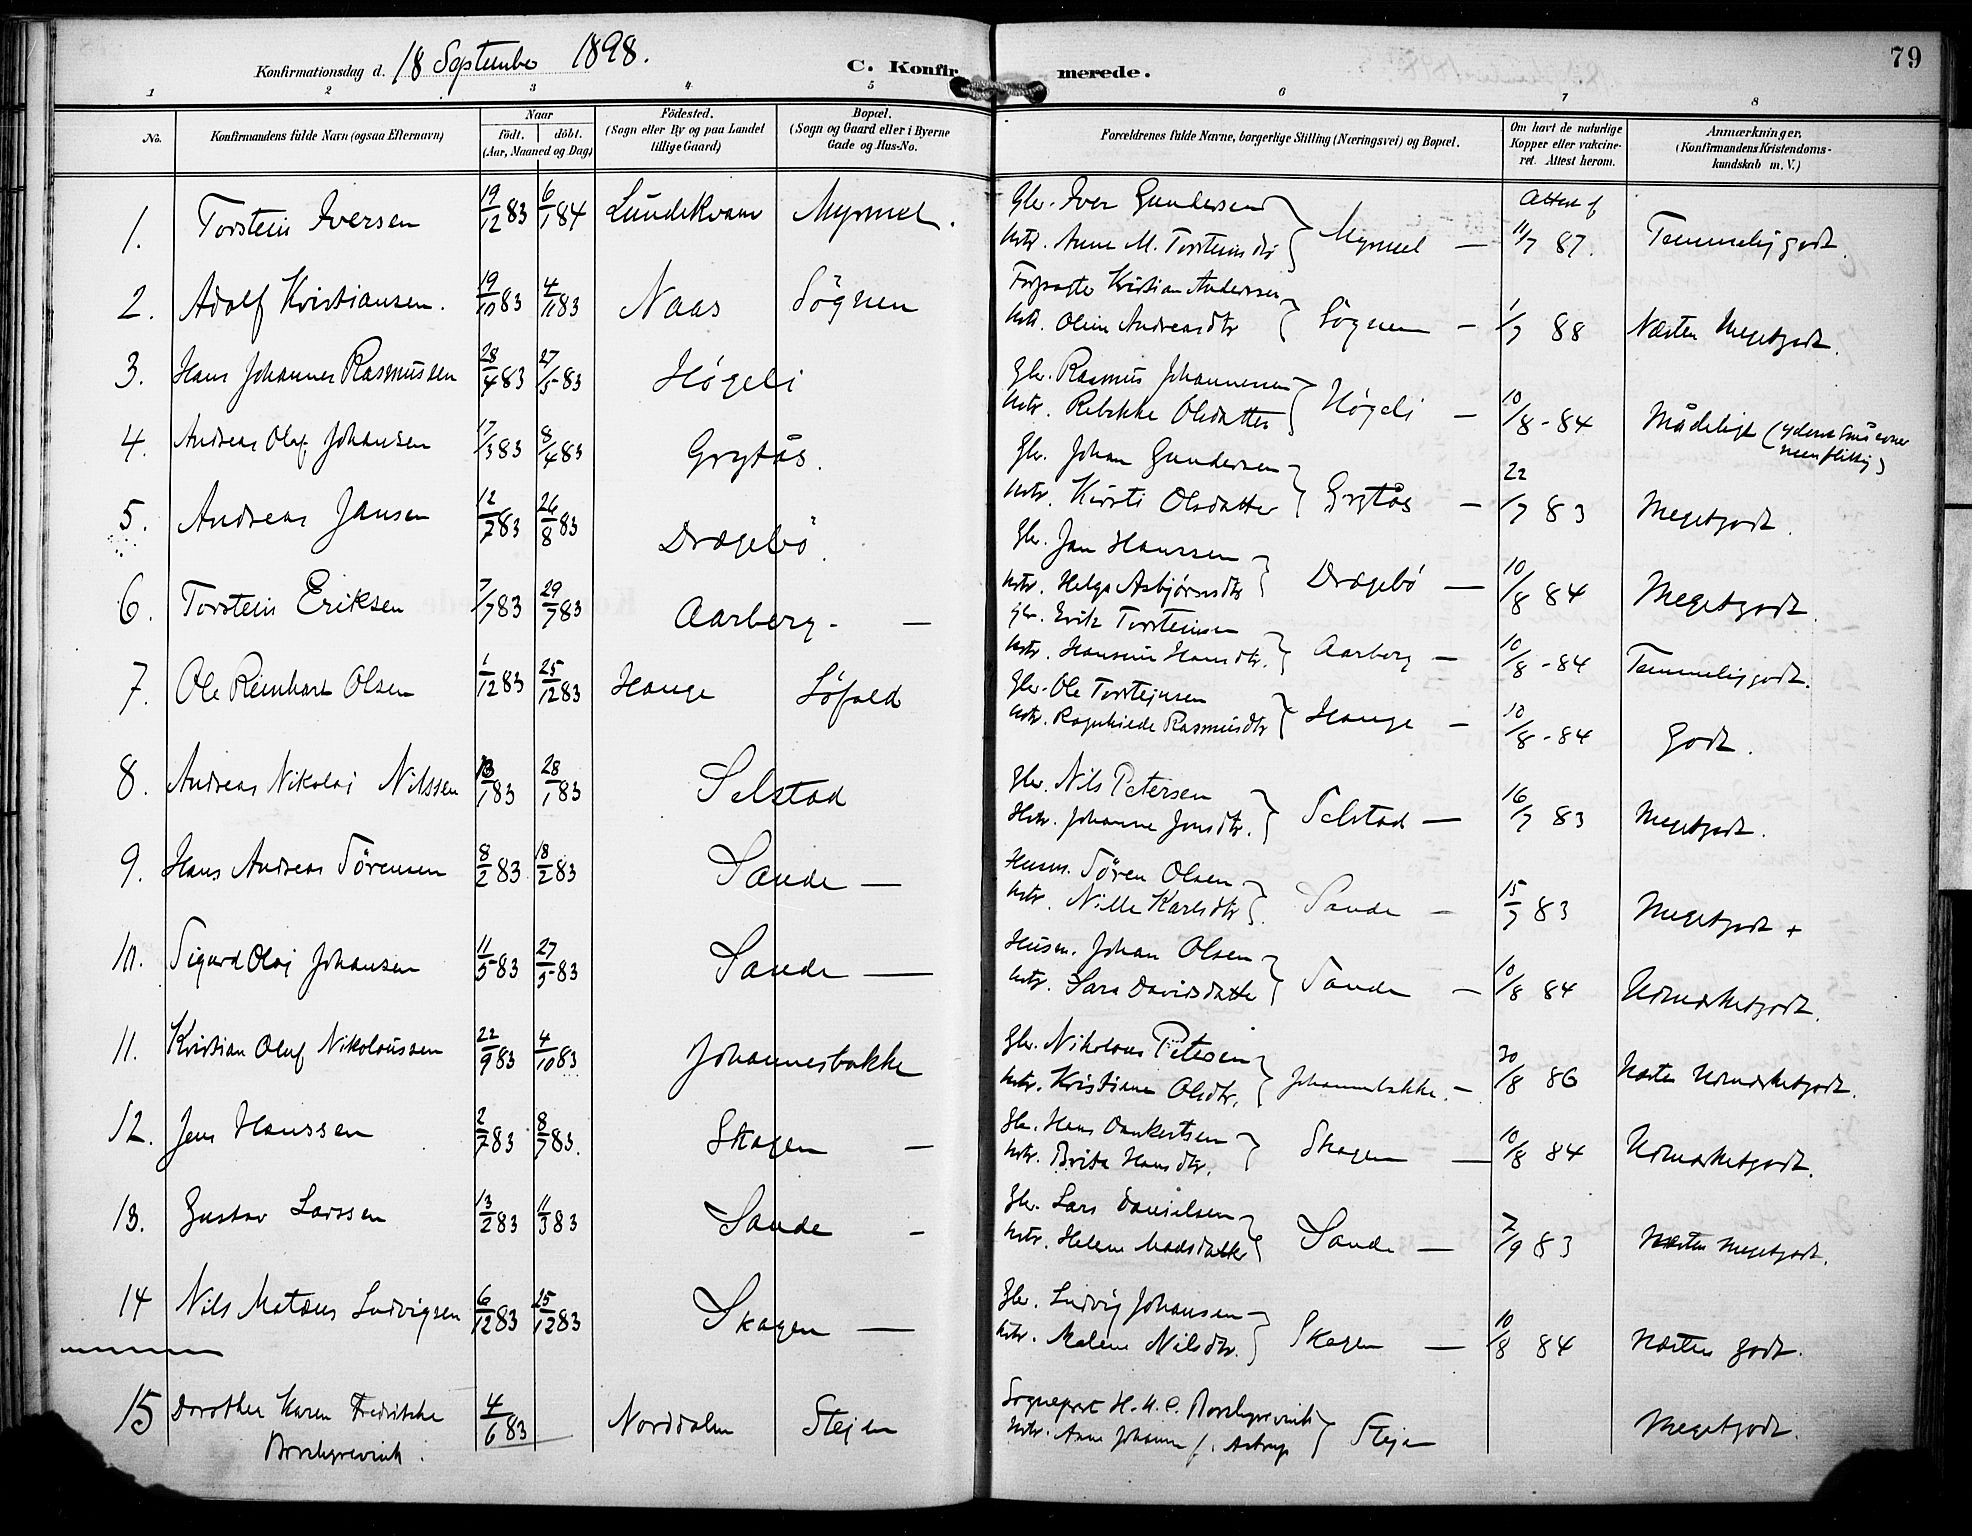 79
Konfirmationsdag d. 18 September 1898.
C. Konfirmerede.
1 2 3 4 5 6 7 8
No.
Konfirmandens fulde Navn (ogsaa Efternavn)
Naar
födt. döbt.
(Aar, Maaned og Dag)
Födested.
(Sogn eller By og paa Landet
tillige Gaard)
Bopæl.
(Sogn og Gaard eller i Byerne
Gade og Hus-No.
Forældrenes fulde Navne, borgerlige Stilling (Næringsvei) og Bopæl.
Om havt de naturlige
Kopper eller vakcine-
ret. Attest herom.
Anmærkninger.
(Konfirmandens Kristendoms-
kundskab m. V.)
1. Torstein Iversen 19/12 83 6/1 84 Lundekvam Myrmel.
Gbr. Iver Gundersen
Kstr. Anne M. Torsteinsdtr } Myrmel — Attest af 11/7 87. Temmelig godt.
2. Adolf Kristiansen. 19/10 83 4/11 83 Naas Sögnen
Forpagter Kristian Andersen
Kstr. Oline Andreasdtr } Sögnen — 1/7 88 Næsten Megetgodt.
3. Hans Johannes Rasmussen 28/4 83 27/5 83 Høgeli
Gbr. Rasmus Johannesen
Kstr. Rebekke Olsdatter } Høgeli — 10/8 - 84 Mådeligt (yderst små evner
men flittig)
4. Andreas Olaf Johansen 17/3 83 8/4 83 Grytås.
Gbr. Johan Gundersen
Kstr. Kirsti Olsdatter } Grytås — 22/7 83 Megetgodt.
5. Andreas Jansen 12/7 83 26/8 83 Drægebö.
Gbr. Jan Hanssen
Kstr. Helga Asbjørnsdtr } Drægebö — 10/8 84 Megetgodt.
6. Torstein Eriksen 7/7 83 29/7 83 Aarberg - —
Gbr. Erik Torsteinsen
Kstr. Hansine Hansdtr. } Aarberg — 10/8 - 84 Temmelig godt.
7. Ole Reinhart Olsen 1/12 83 25/12 83 Hauge Löfald
Gbr. Ole Torsteinsen
Kstr. Ragnhilde Rasmusdtr } Hauge — 10/8 - 84 Godt.
8. Andreas Nikolai Nilssen 13/1 83 28/1 83 Selstad
Gbr. Nils Petersen
Hstr. Johanne Jonsdtr. } Selstad — 16/7 83 Megetgodt.
9. Hans Andreas Sörensen 8/2 83 18/2 83 Sande —
Husm. Sören Olsen
Kstr. Nille Karlsdtr } Sande — 15/7 83 Megetgodt +
10. Sigurd Olai Johansen 11/5 83 27/5 83 Sande —
Husm. Johan Olsen
Kstr. Sara Davidsdatter } Sande — 10/8 84 Udmærketgodt.
11. Kristian Oluf Nikolaussen 22/9 83 4/10 83 Johannesbakke
Gbr. Nikolaus Petersen
Kstr. Kristiane Olsdtr. } Johannesbakke. — 30/8 86 Næsten Udmærketgodt.
12. Jens Hanssen 2/7 83 8/7 83. Skagen —
Gbr. Hans Dankertsen
Kstr. Brita Hansdtr. } Skagen — 10/8 84 Udmærketgodt.
13. Gustav Larssen 13/2 83 11/3 83 Sande -
Gbr. Lars Danielsen
Kstr. Helene Madsdatter } Sande — 2/9 83 Næsten megetgodt.
14 Nils Matæus Ludvigsen 6/12 83 25/12 83 Skagen —
Gbr. Ludvig Johansen
Kstr. Malene Nilsdtr. } Skagen — 10/8 84 Næsten godt.
15 Dorothea Karen Fredrikke
Borchgrevink. 4/6 83 Norddalen Stejen
Sogneprest H. H. C. Borchgrevink
Kstr. Anne Johanne f. Astrup } Stejen Megetgodt.